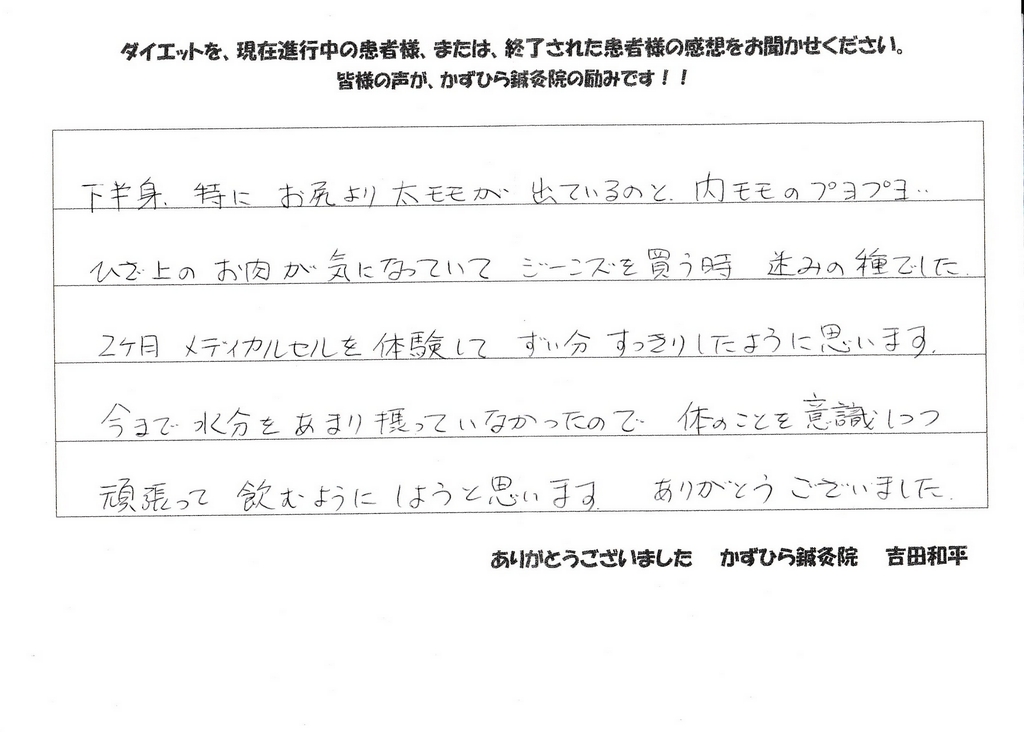 ダイエットを、現在進行中の患者様、または、終了された患者様の感想をお聞かせください。
皆様の声が、かずひら鍼灸院の励みです！！
下半身、特に お尻より太モモが 出ているのと、内モモのプヨプヨ‥
ひざ上の お肉が気になっていて ジーンズを買う時 迷みの種でした。
2ヶ月 メディカルセルを体験して ずい分 すっきりしたように思います。
今まで 水分を あまり摂っていなかったので 体のことを意識しつつ
頑張って 飲むように しようと思います。 ありがとうございました。
ありがとうございました かずひら鍼灸院 吉田和平